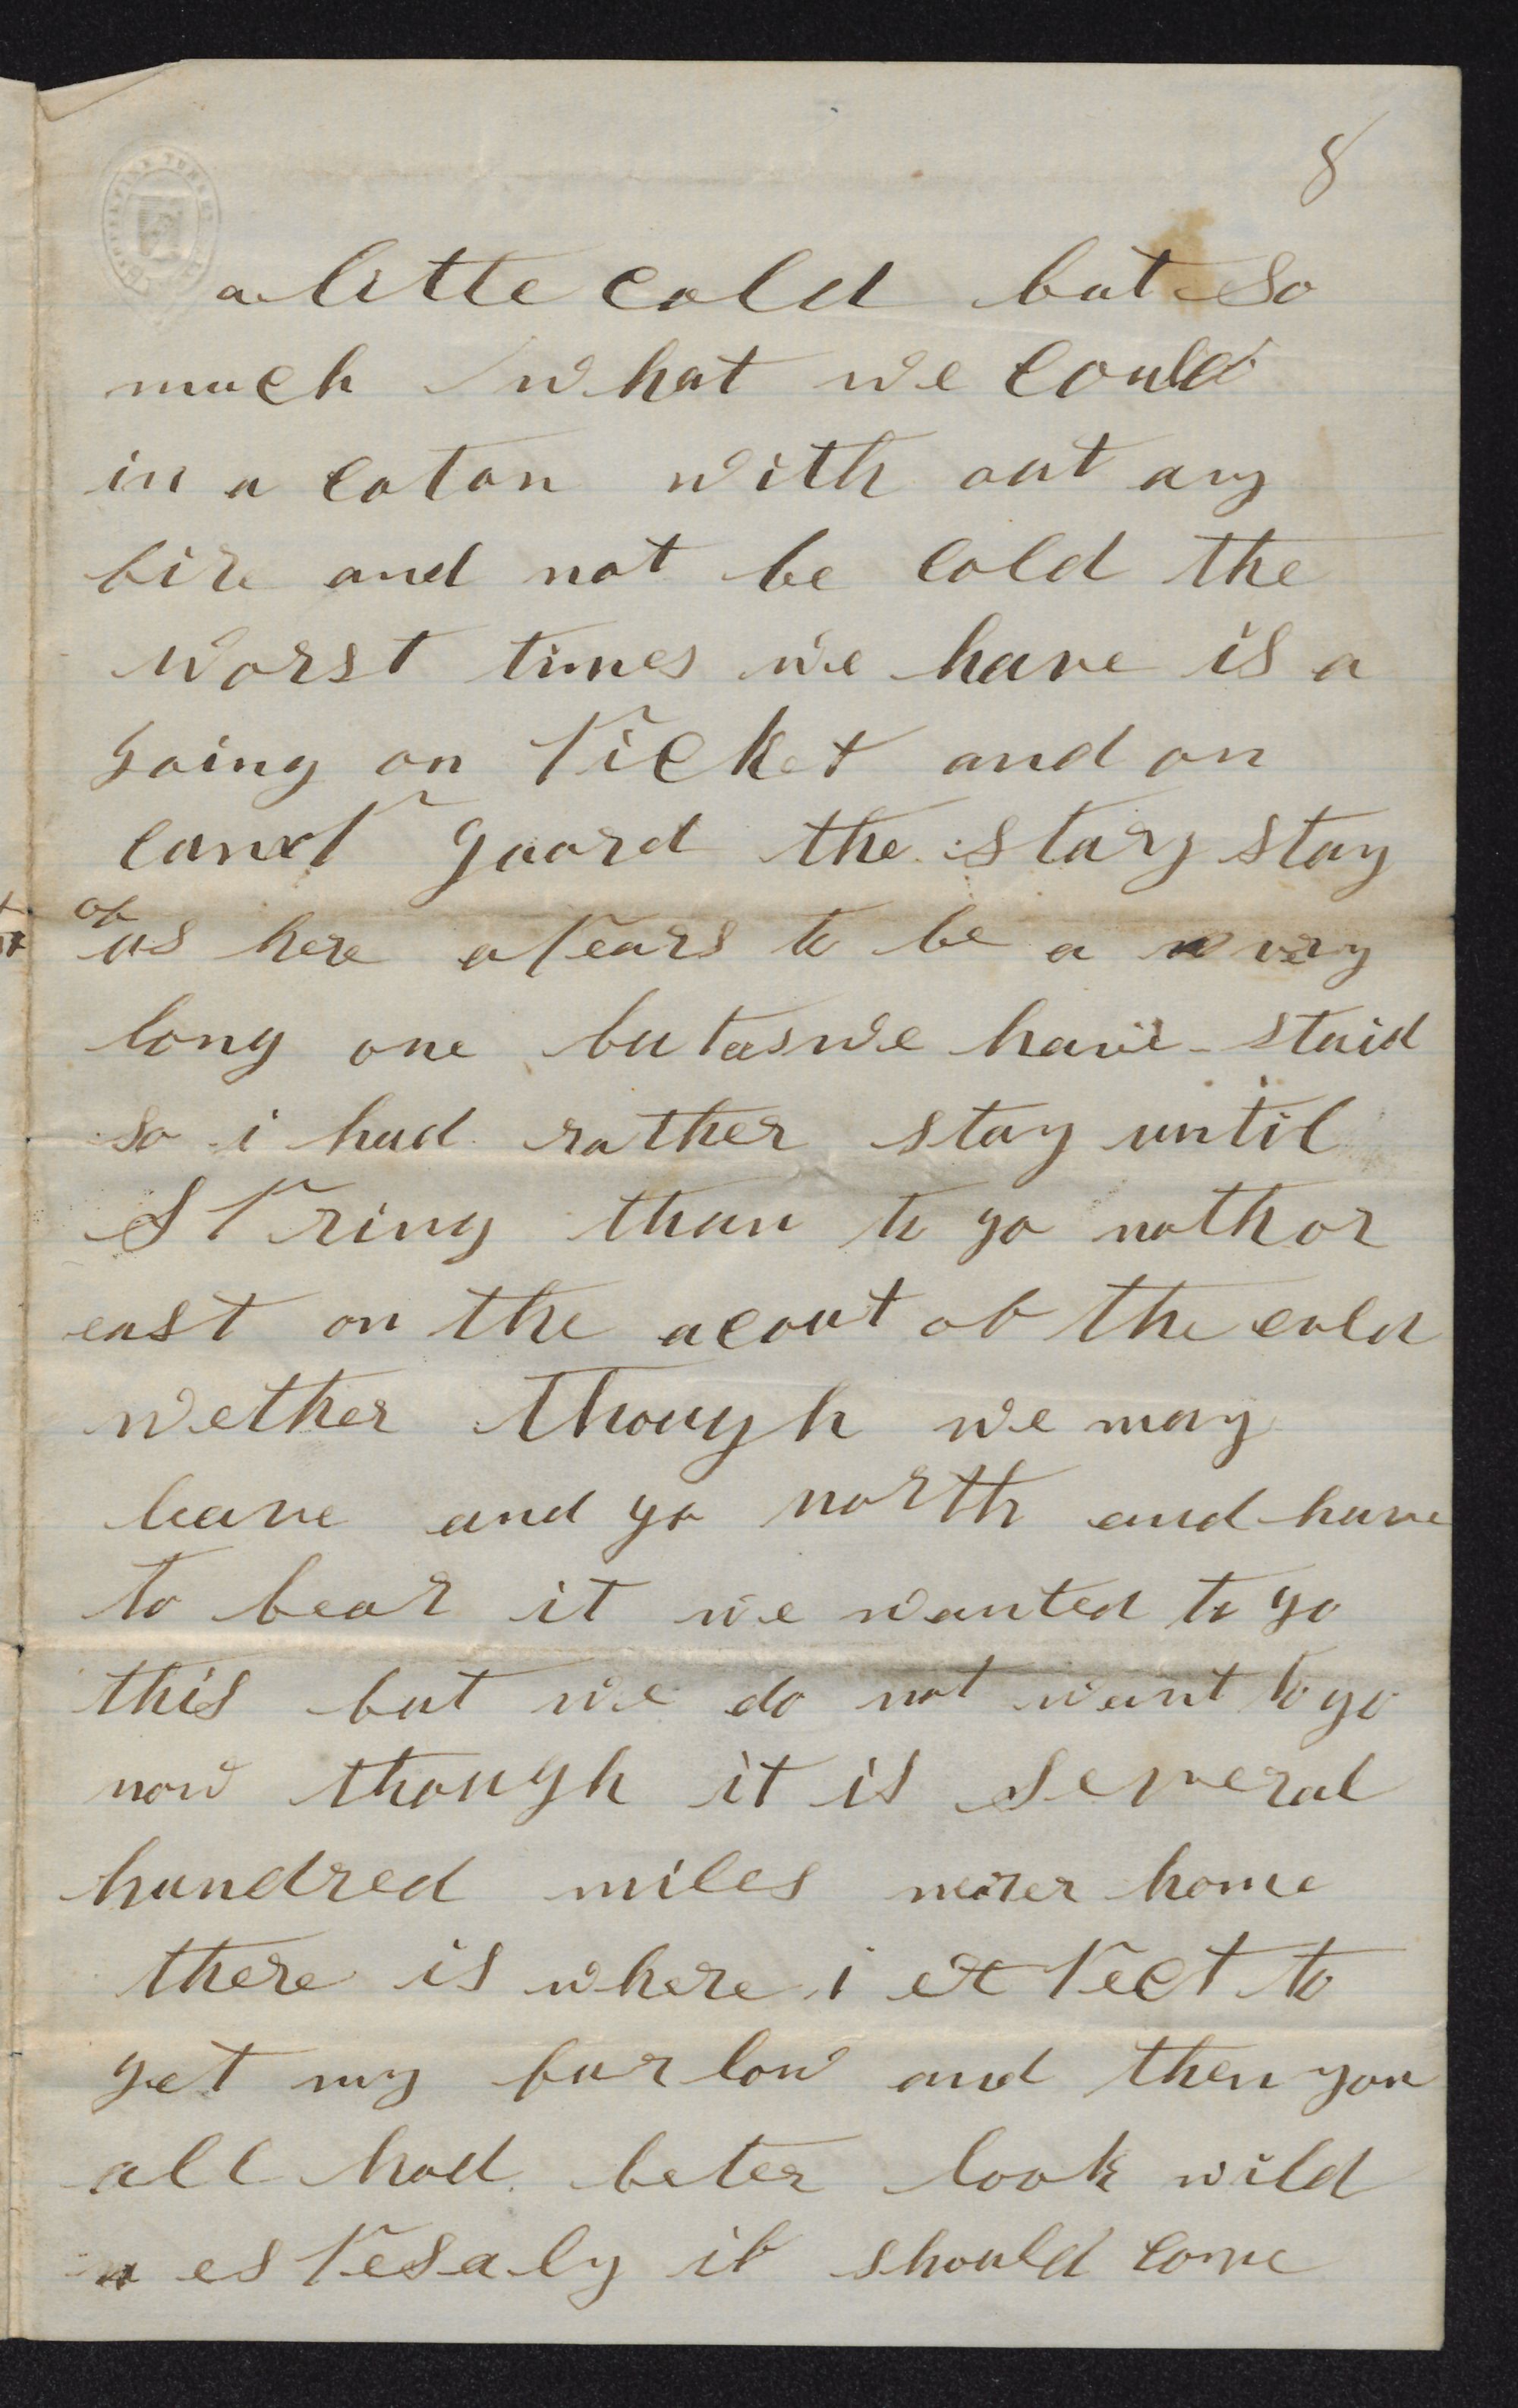 8
a little cold but so
much what we could
in a coton with out any
fire and not be cold the
worst times we have is a
going on Picket and on
camp guard the stay stay
of
us here apears to be a very
long one but as we have staid
so i had rather stay until
Spring than to go noth or
east on the acout of the cold
wether though we may
leave and go north and have
to bear it we wanted to go
this but we do not want to go
now though it is several
hundred miles neirer home
there is where i expect to
get my furlow and then you
all had beter look wild
espesaly if should come